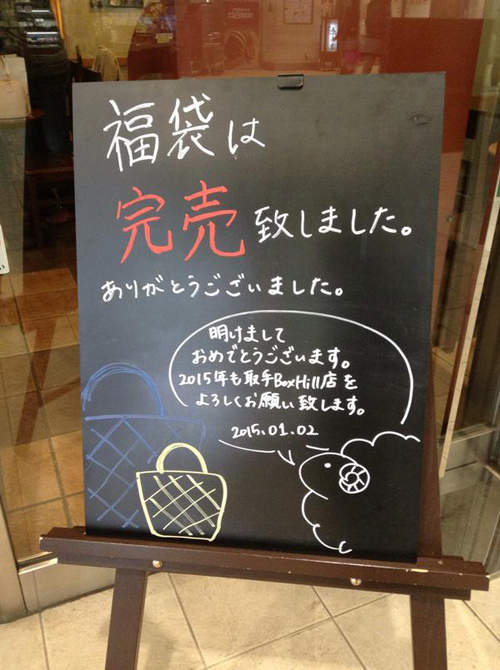 福袋は
完売致しました。
ありがとうございました。
明けまして
おめでとうございます。
2015年も取手BoxHill店を
よろしくお願い致します。
2015.01.02